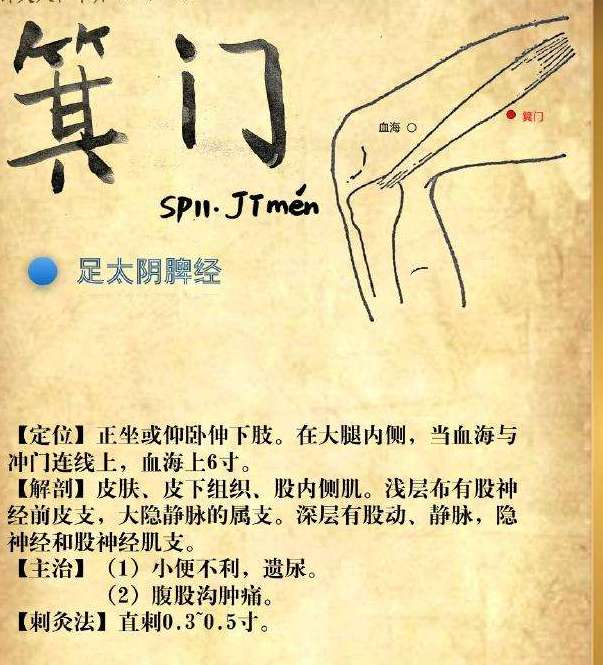 箕门
血海
箕门
SP11.JTmén
足太阴脾经
【定位】正坐或仰卧伸下肢。在大腿内侧，当血海与
冲门连线上，血海上6寸。
【解剖】皮肤、皮下组织、股内侧肌。浅层布有股神
经前皮支，大隐静脉的属支。深层有股动、静脉，隐
神经和股神经肌支。
【主治】（1）小便不利，遗尿。
（2）腹股沟肿痛。
【刺灸法】直刺0.3~0.5寸。